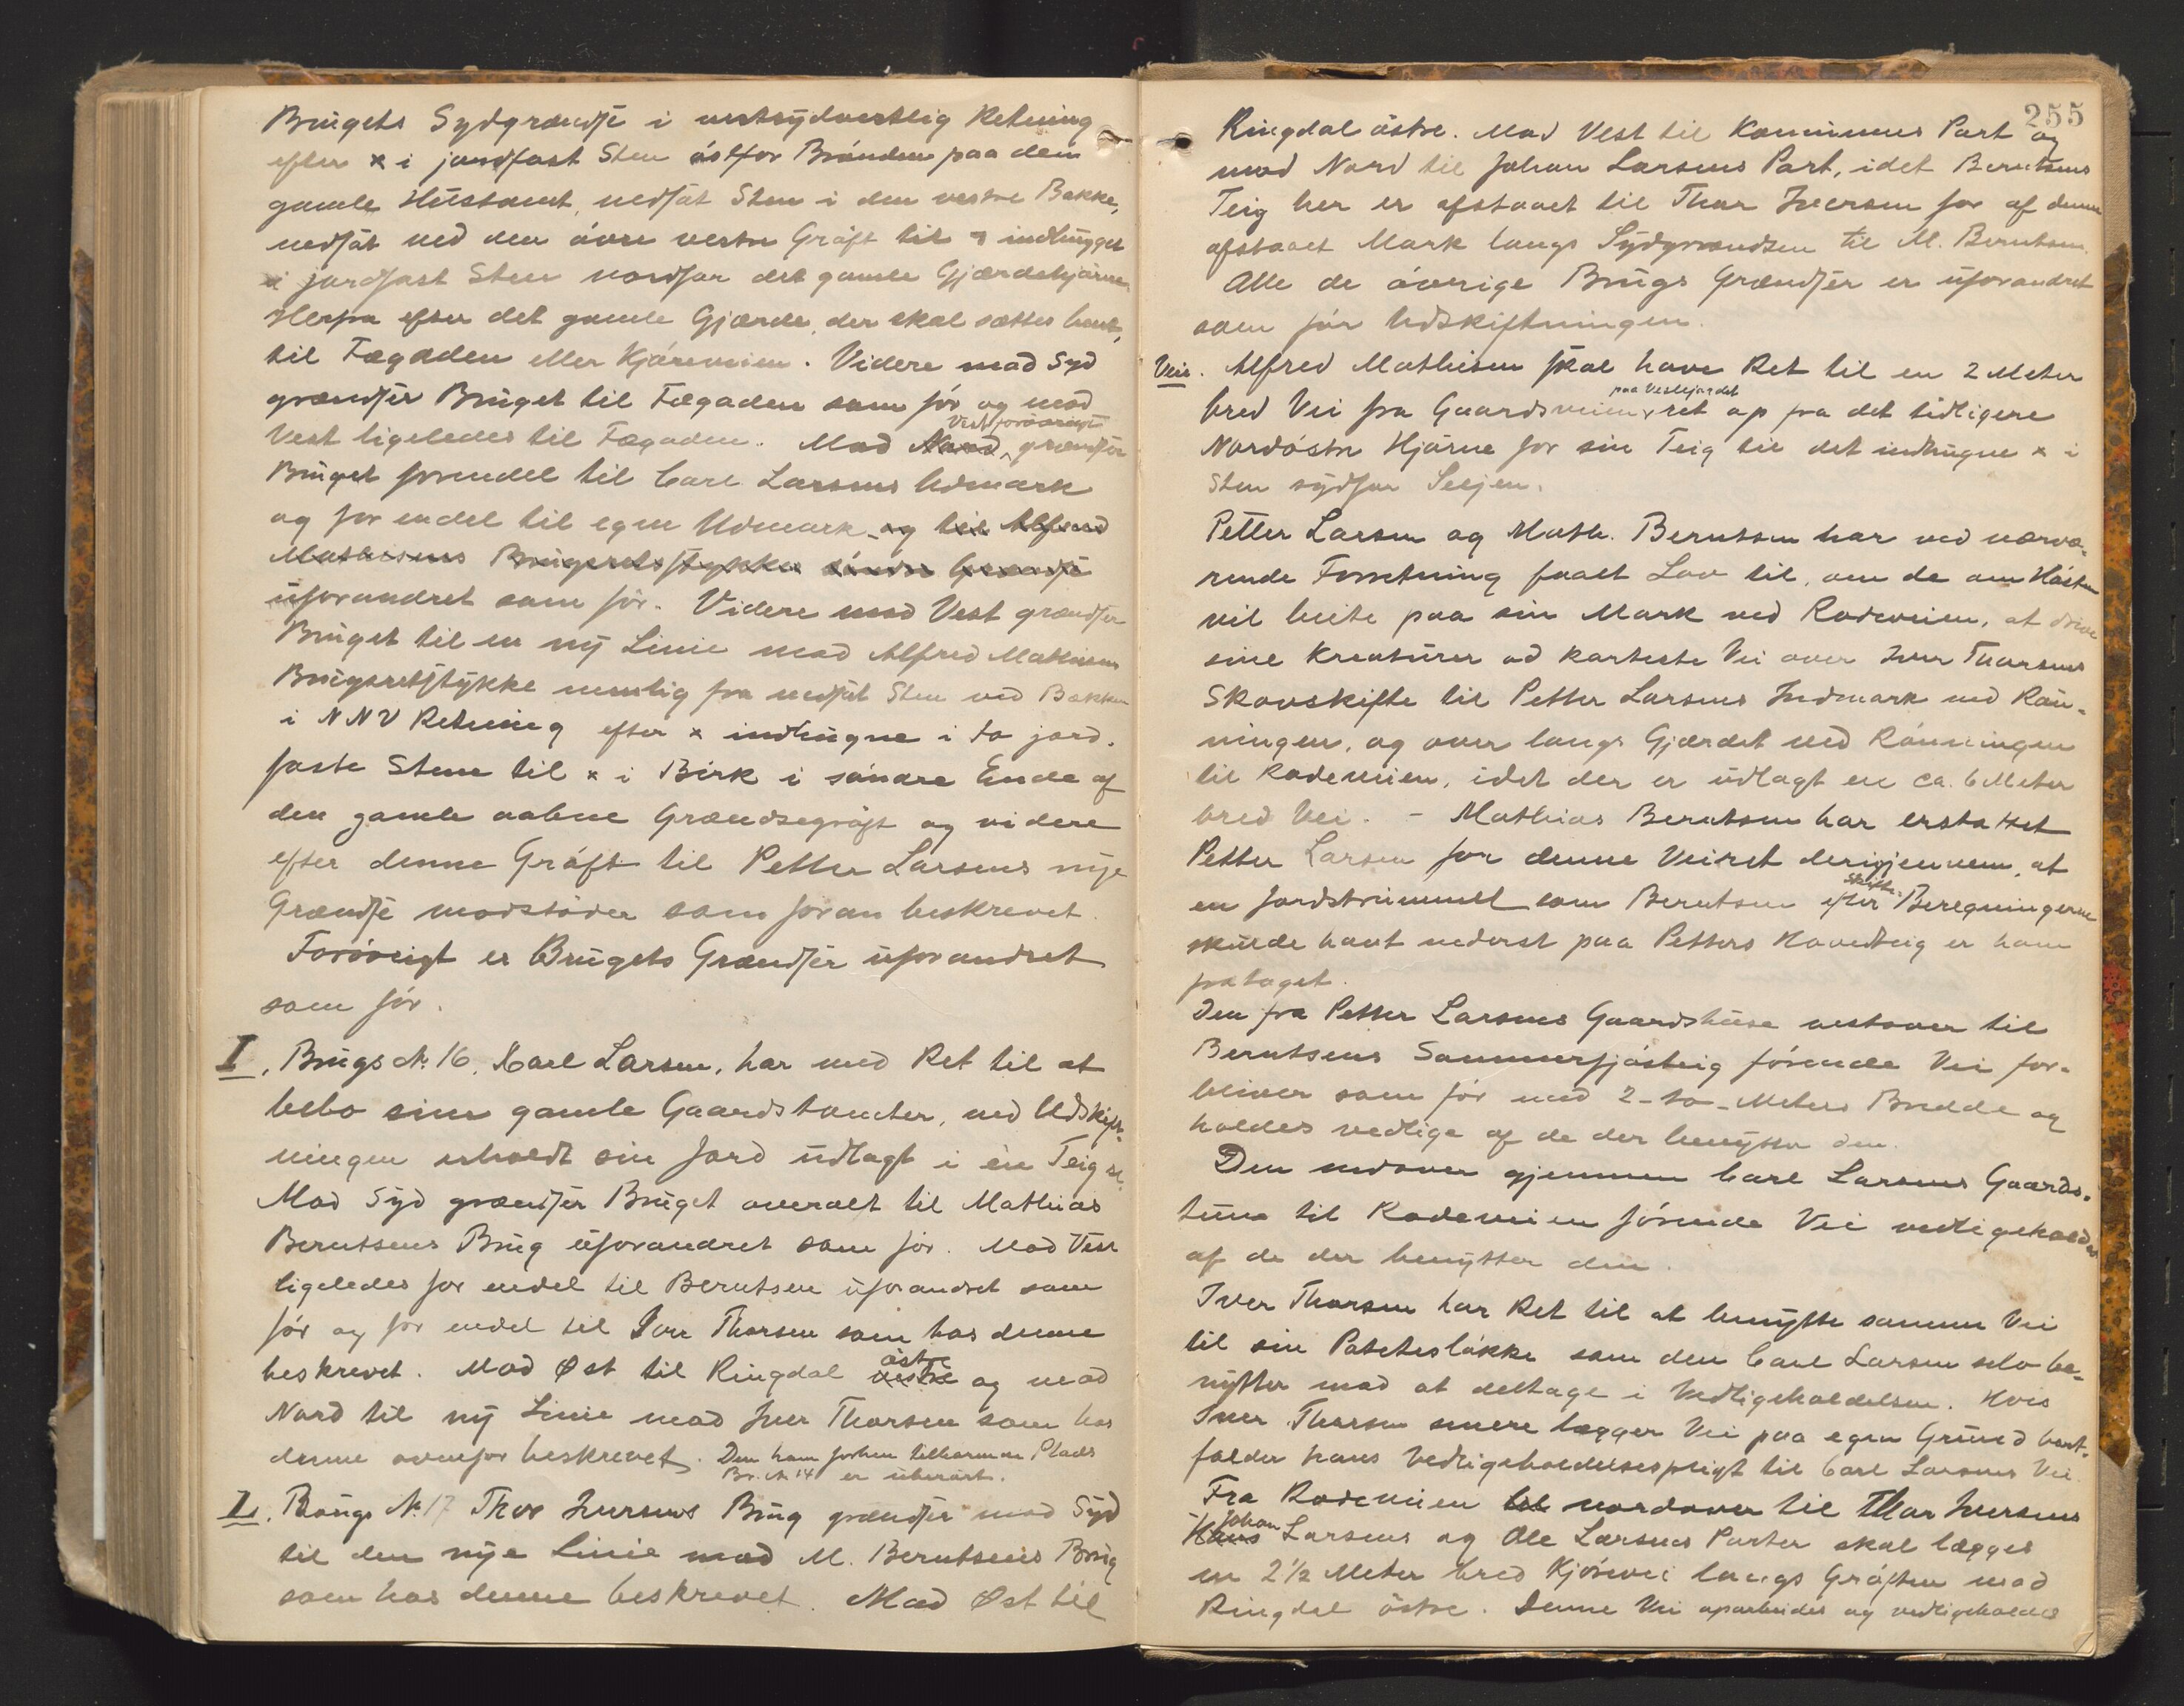 Brugets Sydgrændse i vestsydvestlig Retning
efter x i jordfast Sten östfor Brönden paa den
gamle Hustomt, nedsat Sten i den vestre Bakke,
nedsat ved den övre vestre Gröft til x indhugget
i jordfast Sten nordfor det gamle Gjærdehjörne
Herfra efter det gamle Gjærde, der skal sættes bort,
til Fægaden eller Kjöreveien. Videre mod Syd
grændser Bruget til Fægaden som för og mod
Vest ligeledes til Fægaden. Mod Nord Vest forövrigt grændser
Bruget forendel til Carl Larsens Udmark
og for endel til egen Udmark og til Alfred
Mathisens Brugsretsstykkes söndre Grændse
uforandret som för. Videre mod Vest grændser
Bruget til en ny Linie mod Alfred Mathisens
Brugsretstykke nemlig fra nedsat Sten ved Bækken
i NNV Retning efter x indhugne i to jord-
faste Stene til x i Birk i söndre Ende af
den gamle aabne Grændsegröft og videre
efter denne Gröft til Petter Larsens nye
Grændse modstöder som foran beskrevet.
Forövrigt er Brugets Grændser uforandret
som för.
I. Brugs No 16, Karl Larsen, har med Ret til at
bebo sine gamle Gaardstomter, ved Udskift-
ningen erholdt sin Jord udlagt i én Teig
Mod Syd grændser Bruget overalt til Mathias
Berntsens Brug uforandret som för. Mod Vest
ligeledes for endel til Berntsen uforandret som
för og for endel til Iver Thorsen som hos denne
beskrevet. Mod Øst til Ringdal vestre östre og mod
Nord til ny Linie mod Iver Thorsen som hos
denne ovenfor beskrevet. Den ham forhen tilkommne Plads
Br. No 14 er uberört.
L. Brugs No 17 Thor Iversens Brug grændser mod Syd
til den nye Linie mod M. Berntsens Brug
som hos denne beskrevet. Mod Øst til
255
Ringdal östre. Mod Vest til Kommunens Part og
mod Nord til Johan Larsens Part, idet Berntsens
Teig her er afstaaet til Thor Iversen for af denne
afstaaet Mark langs Sydgrændsen til M. Berntsen.
Alle de övrige Brugs Grændser er uforandret
som för Udskiftningen.
Veie. Alfred Mathisen skal have Ret til en 2 Meter
bred Vei fra Gaardsveien paa Vestlejordet ret op fra det tidligere
Nordöstre Hjörne for sin Teig til det indhugne x i
Sten sydfor Seljen.
Petter Larsen og Math. Berntsen har ved nærvæ-
rende Forretning faaet Lov til, om de om Hösten
vil beite paa sin Mark ved Rodeveien, at drive
sine Kreaturer ad korteste Vei over Iver Thorsens
Skovskifte til Petter Larsens Indmark ved Rön-
ningen, og over langs Gjærdet ved Rönningen
til Rodeveien, idet der er udlagt en ca. 6 Meter
bred Vei. - Mathias Berntsen har erstattet
Petter Larsen for denne Veiret derigjennem, at
en Jordstrimmel som Berntsen efter Skifte-Beregningerne
skulde havt nederst paa Petters Hovedteig er ham
frataget.
Den fra Petter Larsens Gaardshuse vestover til
Berntsens Sommerfjösteig förende Vei for-
bliver som för med 2 - to - Meters Bredde og
holdes vedlige af de der benytter den.
Den nedover gjennem Carl Larsens Gaards-
tun til Rodeveien förende Vei vedligeholdes
af de der benytter den.
Iver Thorsen har Ret til at benytte samme Vei
til sin Potetesløkke som den Carl Larsen selv be-
nytter mod at deltage i Vedligeholdelsen. Hvis
Iver Thorsen senere lægger Vei paa egen Grund bort-
falder hans Vedligeholdelsespligt til Carl Larsens Vei
Fra Rodeveien til nordover til Thor Iversens
Hans Johan Larsens og Ole Larsens Parter skal lægges
en 2 1/2 Meter bred Kjörevei langs Gröften mod
Ringdal östre. Denne Vei oparbeides og vedligeholdes